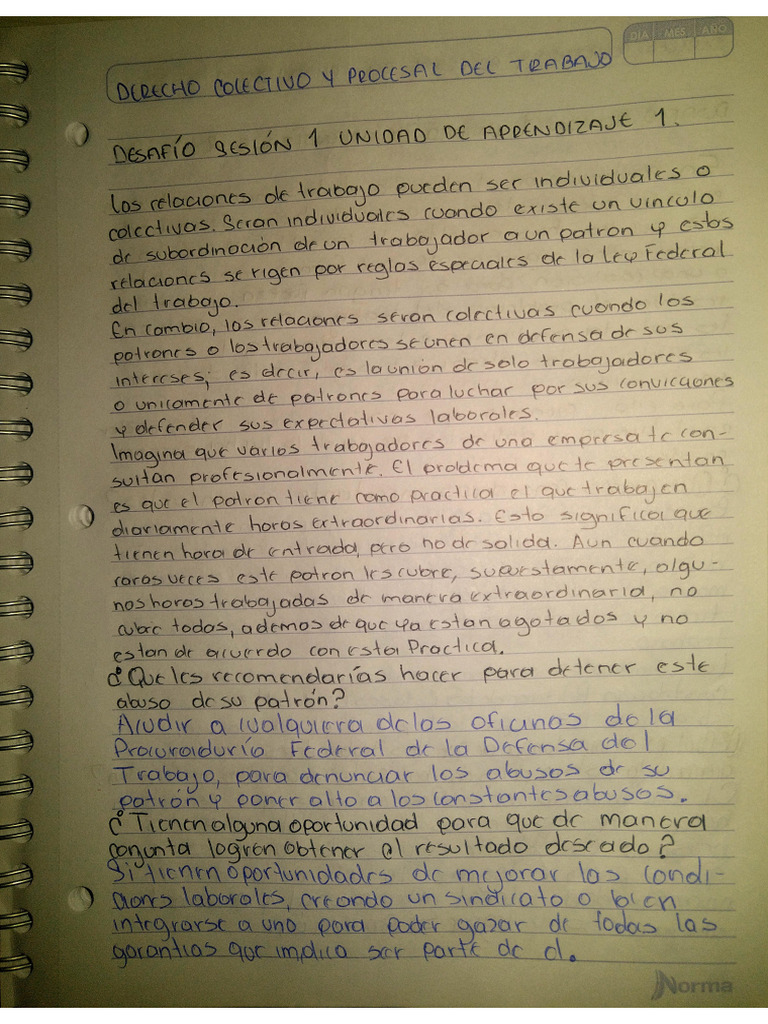 DÍA MES AÑO
DERECHO COLECTIVO Y PROCESAL DEL TRABAJO
DESAFÍO SESIÓN 1 UNIDAD DE APRENDIZAJE 1.
Las relaciones de trabajo pueden ser individuales o
colectivas. Seran individuales cuando existe un vinculo
de subordinación de un trabajador a un patron y estas
relaciones se rigen por reglas especiales de la Ley Federal
del trabajo.
En cambio, las relaciones seran colectivas cuando los
patrones o los trabajadores se unen en defensa de sus
intereses; es decir, es la unión de solo trabajadores
o unicamente de patrones para luchar por sus convicciones
y defender sus expectativas laborales.
Imagina que varios trabajadores de una empresa te con-
sultan profesionalmente. El problema que te presentan
es que el patron tiene como practica el que trabajen
diariamente horas extraordinarias. Esto significa que
tienen hora de entrada, pero no de salida. Aun cuando
raras veces este patron les cubre, supuestamente, algu-
nas horas trabajadas de manera extraordinaria, no
cubre todas, ademas de que ya estan agotados y no
estan de acuerdo con esta Practica.
¿Que les recomendarías hacer para detener este
abuso de su patrón?
Acudir a cualquiera de las oficinas de la
Procuraduría Federal de la Defensa del
Trabajo, para denunciar los abusos de su
patrón y poner alto a los constantes abusos.
¿Tienen alguna oportunidad para que de manera
conjunta logren obtener el resultado deseado?
Si tienen oportunidades de mejorar las condi-
ciones laborales, creando un sindicato o bien
integrarse a uno para poder gozar de todas las
garantías que implica ser parte de el.
Norma